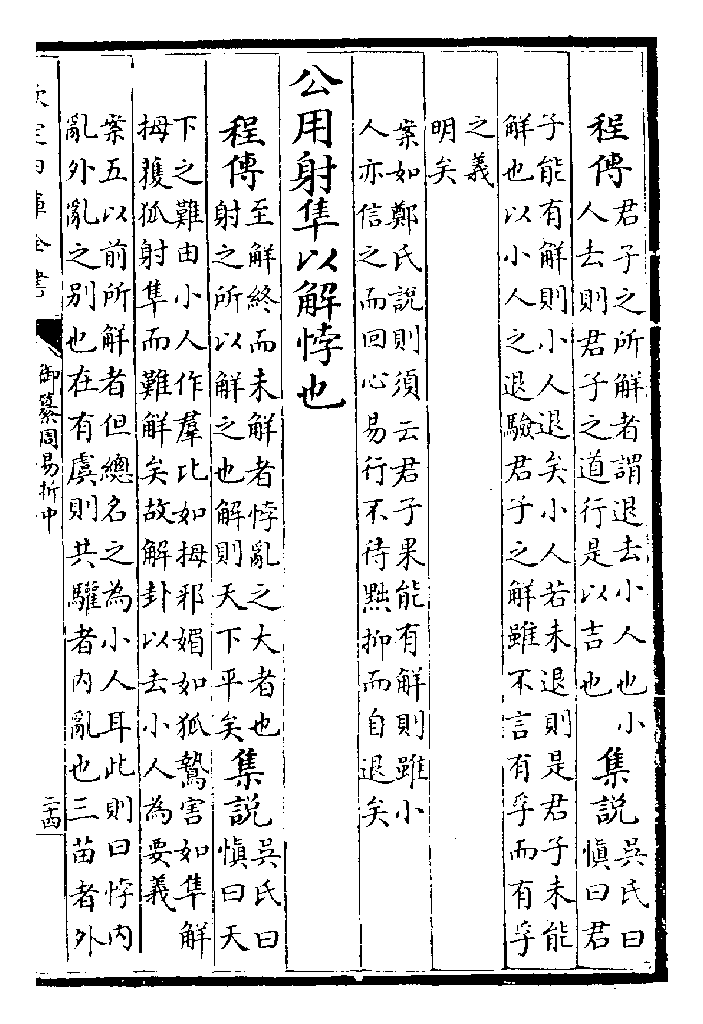 程傳君子之所解者謂退去小人也小人去則君子之道行是以吉也集說吳氏曰慎曰君
子能有解則小人退矣小人若未退則是君子未能
解也以小人之退驗君子之解雖不言有孚而有孚
之義
明矣
案如鄭氏說則須云君子果能有解則雖小
人亦信之而回心易行不待黜抑而自退矣
公用射隼以解悖也
程傳至解終而未解者悖亂之大者也射之所以解之也解則天下平矣集說吳氏曰慎曰天
下之難由小人作羣比如拇邪媚如狐鷙害如隼解
拇獲狐射隼而難解矣故解卦以去小人為要義
案五以前所解者但總名之為小人耳此則曰悖内
亂外亂之别也在有虞則共驩者内亂也三苗者外
欽定四庫全書
御纂周易折中
二十四